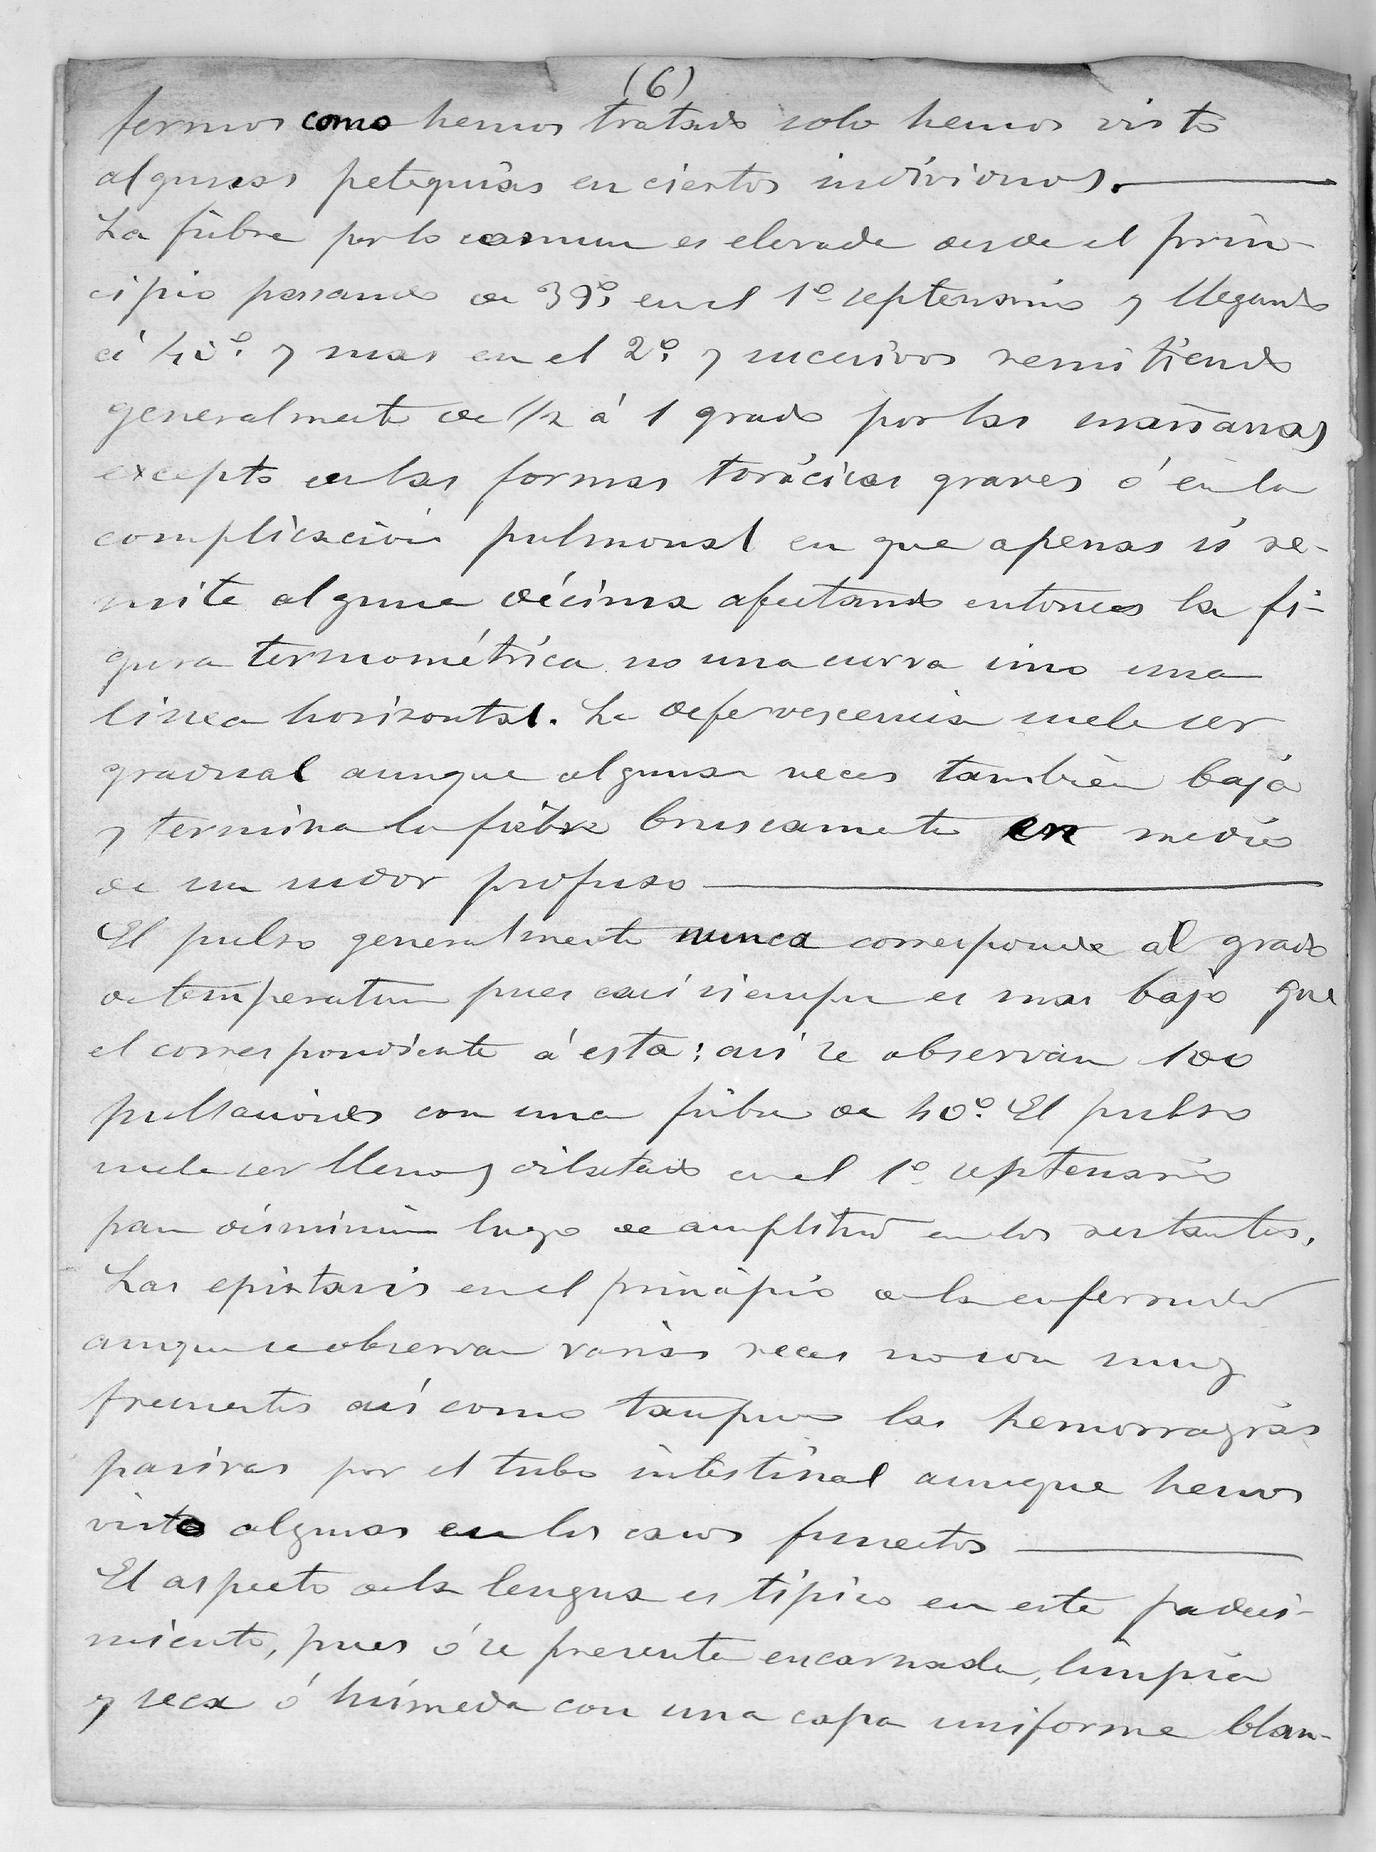 (6)
fermos como hemos tratado solo hemos visto
algunas petequias en ciertos individuos.
La fiebre por lo comun es elevada desde el prin-
cipio pasando de 39º, en el 1º septenario y llegando
á 40º. y mas en el 2º. y sucesivos remitiendo
generalmente de 1/2 á 1 grado por las mañanas
excepto en las formas torácicas graves ó en la
complicación pulmonal en que apenas si re-
mite alguna décima afectando entonces la fi-
gura termométrica no una curva sino una
linea horizontal. La defervescencia suele ser
gradual aunque algunas veces también baja
y termina la fiebre bruscamente en medio
de un sudor profuso
El pulso generalmente nunca corresponde al grado
de temperatura pues casi siempre es mas bajo que
el correspondiente á esta: asi se observan 100
pulsaciones con una fiebre de 40º. El pulso
suele ser lleno y dilatado en el 1º septenario
para disminuir luego de amplitud en los restantes.
Las epistaxis en el principio de la enfermedad
aunque se observan varias veces no son muy
frecuentes así como tampoco las hemorragias
pasivas por el tubo intestinal aunque hemos
visto algunas en los casos funestos
El aspecto de la lengua es tipico en este padeci-
miento, pues ó se presenta encarnada, limpia
y seca ó húmeda con una capa uniforme blan-